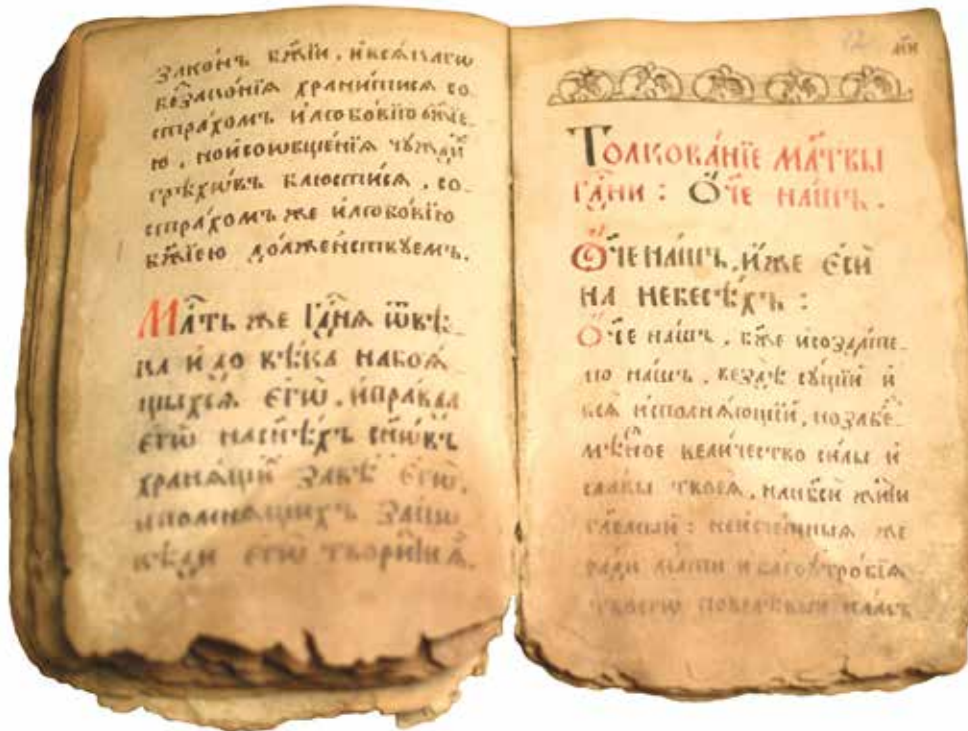 зако́нъ бж҃їи, и всѧ́кагѡ
беззако́нїѧ храни́тисѧ со
стра́хомъ и любо́вїю
ю, но и соѡбще́нїѧ чужди́
грѣхѡ́въ блюсти́сѧ, со
стра́хомъ же и любо́вїю
бж҃їею до́лженствꙋемъ.
Мⷭ҇ть же гдⷭ҇нѧ ѿ вѣ́
ка и до вѣ́ка на боѧ́
щыхсѧ є҆гѡ̀, и пра́вда
є҆гѡ̀ на сынѣ́хъ сынѡ́въ
хранѧ́щи завѣ́ є҆гѡ̀,
и по́мнѧщихъ за́по
вѣди є҆гѡ̀ твори́ти ѧ҆̀.
12 ми
Толкова́нїе мл҃твы
гдⷭ҇ни: Ѻ҆́ч҃е на́шъ.
Ѻ҆́ч҃е на́шъ, и҆́же є҆сѝ
на небесѣ́хъ:
Ѻ҆́ч҃е на́шъ, бж҃е и созда́те
лю на́шъ, вездѣ̀ сꙋ́щїй и
всѧ̀ исполнѧ́ющїй,
мѣ́нное вели́чество си́лы и
сла́вы твоеѧ̀,
же
ра́ди млⷭ҇ти и благоꙋтро́бїѧ
твоегѡ̀ повелѣ́вый на́мъ